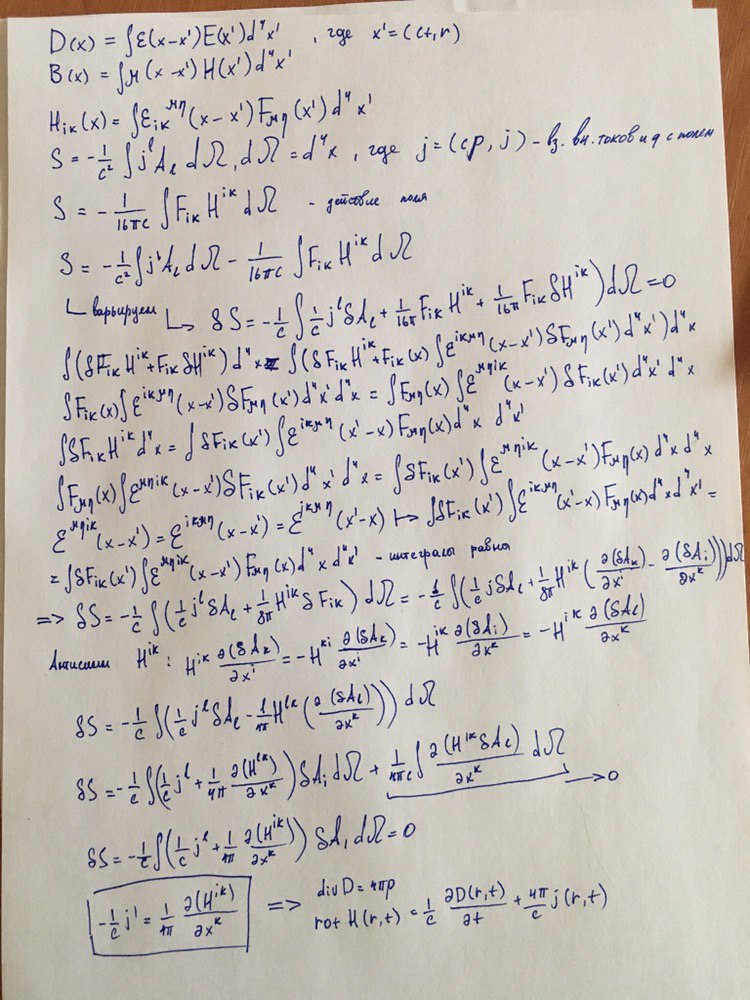 D(x) = ∫ε(x−x')E(x')d⁴x' , где x' = (ct, r)
B(x) = ∫μ(x−x')H(x')d⁴x'
Hᵢₖ(x) = ∫εᵢₖ^μη(x−x')F_μη(x')d⁴x'
S = −1/c² ∫jˡAₗ dΩ, dΩ = d⁴x , где j = (cρ, j) – вз. вн. токов и q с полем
S = −1/16πc ∫Fᵢₖ Hⁱᵏ dΩ – действие поля
S = −1/c² ∫jˡAₗ dΩ − 1/16πc ∫Fᵢₖ Hⁱᵏ dΩ
варьируем ↳ δS = −1/c ∫(1/c jˡδAₗ + 1/16π δFᵢₖ Hⁱᵏ + 1/16π Fᵢₖ δHⁱᵏ)dΩ = 0
∫(δFᵢₖ Hⁱᵏ + Fᵢₖ δHⁱᵏ) d⁴x = ∫(δFᵢₖ Hⁱᵏ + Fᵢₖ(x) ∫ε^ikμη(x−x') δF_μη(x') d⁴x') d⁴x
∫Fᵢₖ(x) ∫ε^ikμη(x−x') δF_μη(x') d⁴x' d⁴x = ∫F_μη(x) ∫ε^μηik(x−x') δFᵢₖ(x') d⁴x' d⁴x
∫δFᵢₖ Hⁱᵏ d⁴x = ∫δFᵢₖ(x') ∫ε^ikμη(x'−x) F_μη(x) d⁴x d⁴x'
∫F_μη(x) ∫ε^μηik(x−x') δFᵢₖ(x') d⁴x' d⁴x = ∫δFᵢₖ(x') ∫ε^μηik(x−x') F_μη(x) d⁴x d⁴x
ε^μηik(x−x') = ε^ikμη(x−x') = ε^ikμη(x'−x) ↦ ∫δFᵢₖ(x') ∫ε^ikμη(x'−x) F_μη(x) d⁴x d⁴x' =
= ∫δFᵢₖ(x') ∫ε^μηik(x−x') F_μη(x) d⁴x d⁴x' – интегралы равны
=> δS = −1/c ∫(1/c jˡδAₗ + 1/8π Hⁱᵏ δFᵢₖ) dΩ = −1/c ∫(1/c jδAₗ + 1/8π Hⁱᵏ (∂(δAₖ)/∂xⁱ − ∂(δAᵢ)/∂xᵏ))dΩ
Антисимм Hⁱᵏ : Hⁱᵏ ∂(δAₖ)/∂xⁱ = −Hᵏⁱ ∂(δAₖ)/∂xⁱ = −Hⁱᵏ ∂(δAᵢ)/∂xᵏ = −Hⁱᵏ ∂(δAₗ)/∂xᵏ
δS = −1/c ∫(1/c jˡ δAₗ − 1/4π Hˡᵏ (∂(δAₗ)/∂xᵏ)) dΩ
δS = −1/c ∫(1/c jˡ + 1/4π ∂(Hˡᵏ)/∂xᵏ) δAᵢ dΩ + 1/4πc ∫ ∂(Hⁱᵏ δAₗ)/∂xᵏ dΩ → 0
δS = −1/c ∫(1/c jˡ + 1/4π ∂(Hⁱᵏ)/∂xᵏ) δAₗ dΩ = 0
−1/c jⁱ = 1/4π ∂(Hⁱᵏ)/∂xᵏ => div D = 4πρ
rot H(r,t) = 1/c ∂D(r,t)/∂t + 4π/c j(r,t)